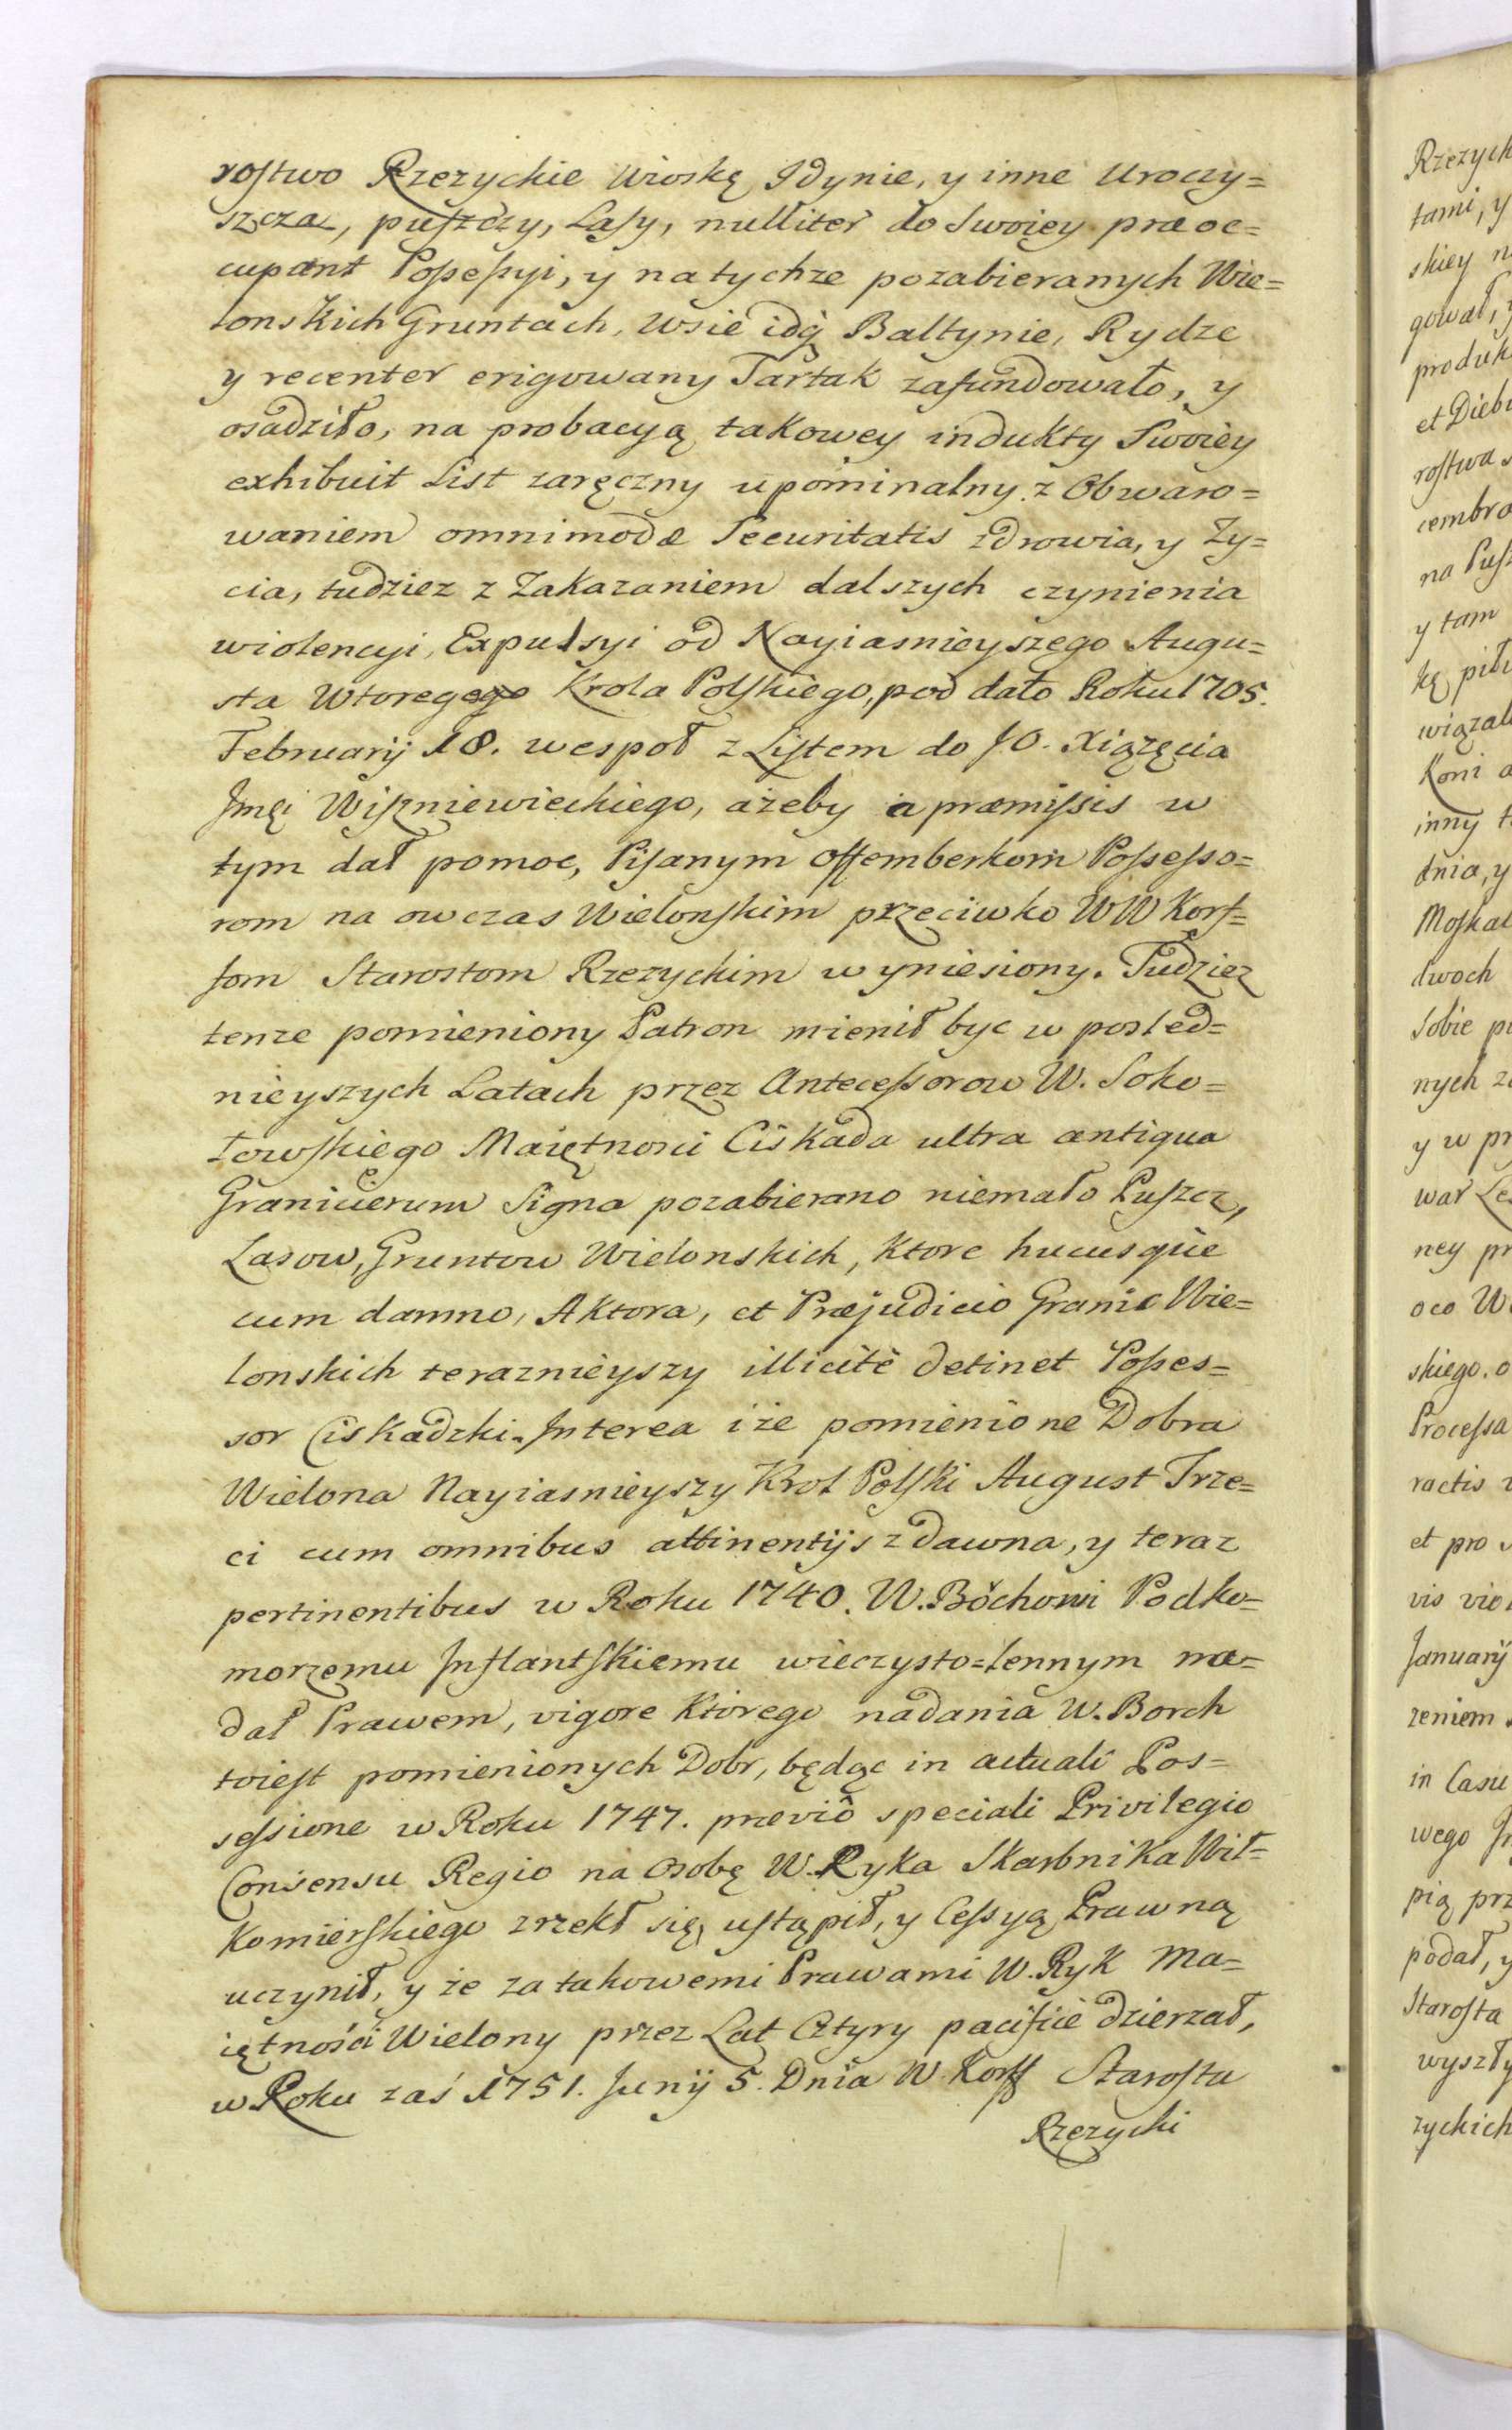 rostwo Rzezyckie Wioskę Idynie, y inne Uroczy=
szcza, puszczy, Lasy, nulliter do Swoiey præoc=
cupant Possessyi, y na tychże pozabieranych Wie=
lonskich Gruntach, Wsie idq Baltynie, Rydze
y recenter erigowany Tartak zafundowało, y
osadziło, na probacyą takowey indukty Swoiey
exhibuit List zaręczny upominalny z Obwaro=
waniem omnimodæ Securitatis zdrowia, y Zy=
cia, tudziez z Zakazaniem dalszych czynienia
wiolencyi, Expulsyi od Nayiasnieyszego Augu=
sta Wtorego Krola Polskiego, pod dato Roku 1705.
Februarij 18. wespoł z Listem do JO. Xiązęcia
Jmęi Wiszniewieckiego, ażeby a præmissis w
tym dał pomoc, Pisanym Offemberkom Possesso=
rom na owczas Wielonskim przeciwko WW Korf=
fom Starostom Rzezyckim wyniesiony. Tudziez
tenze pomieniony Patron mienił byc w posled=
nieyszych Latach przez Antecessorow W. Soko=
łowskiego Maiętnosci Ciskada ultra antiqua
Granicierum Signa pozabierano niemało Puszcz,
Lasow, Gruntow Wielonskich, Ktore hucusque
cum damno, Aktora, et Præjudicio Granic Wie=
lonskich teraznieyszy illicitè detinet Posses=
sor Ciskadzki. Interea iże pomienione Dobra
Wielona Nayiasnieyszy Krol Polski August Trze=
ci cum omnibus attinentijs zdawna, y teraz
pertinentibus w Roku 1740. W. Böchowi Podko=
morzemu Inflantskiemu wieczysto=lennym na=
dał Prawem, vigore Ktorego nadania W. Borch
toiest pomienionych Dobr, będąc in actuali Pos=
sessione w Roku 1747. præviô speciali Privilegio
Consensu Regio na Osobę W. Ryka Skarbnika Wił=
Komierskiego zrzekł się, ustąpił, y Cessyą Prawną
uczynił, y że za takowemi Prawami W. Ryk Ma=
iętności Wielony przez Lat Cztyry pacificè dzierzał,
w Roku zaś 1751. Junij 5. Dnia W. Korff Starosta
Rzezycki
Rzezyck
tami, y
skiey n
gował, y
produk
et Dieb
rostwa s
cembra
na Pus
y tam
kę pił
wiązal
Koni a
inny t
dnia, y
Moskal
dwoch
Sobie p
nych z
y w pr
war Le
ney pr
oco W
skiego. o
Processa
ractis
et pro
vis viol
Januarij
zeniem
in Casu
wego
pią prz
podał, y
Starosta
wyszły
zyckich